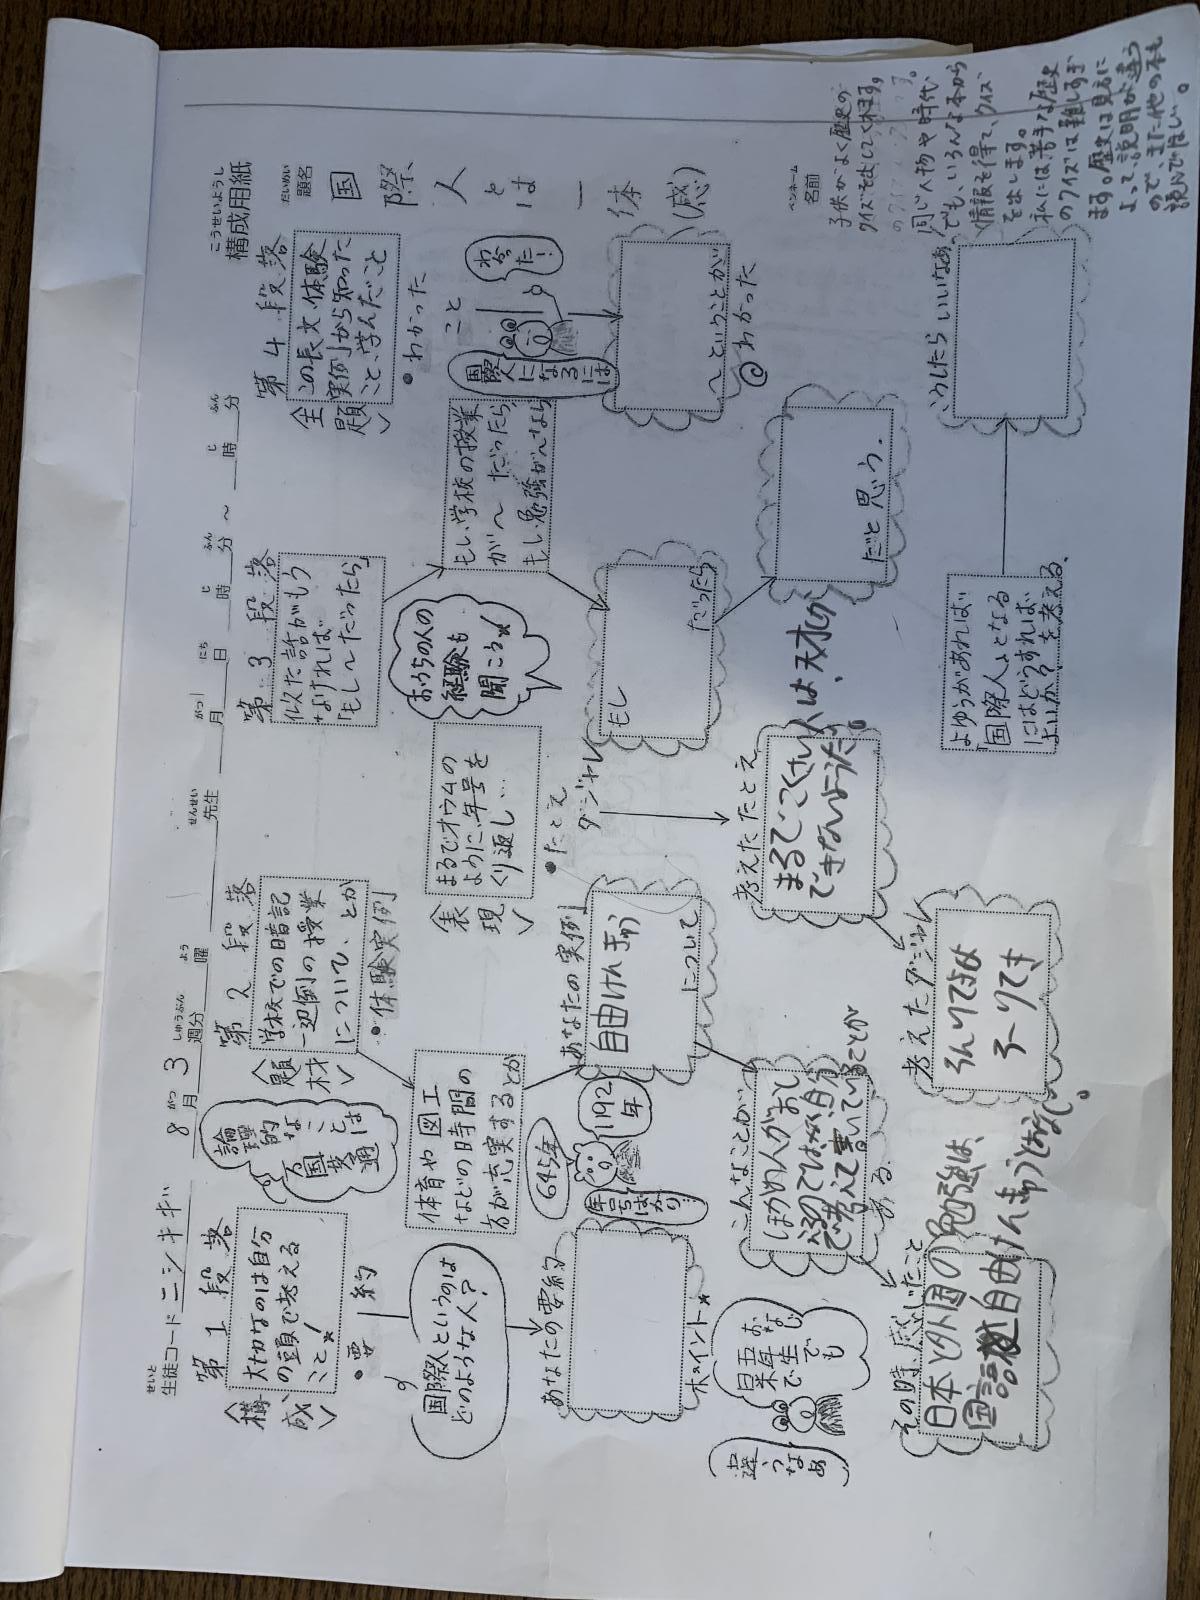 構成用紙
こうせいようし
生徒コード ニシキギ 8月 3週分 曜 先生 月 日 時 分 ～ 時 分
せいと
がつ
しゅうぶん
よう
せんせい
がつ
にち
じ
ふん
じ
ふん
題名
だいめい
国際人とは一体(感)
名前
ペンネーム
第1段落
<構成>
大切なのは自分
の頭で考える
こと!
・要約
国際人というのは
どのような人?
あなたの要約
ポイント★
違うなぁ
日本
お母
同じ
でも
論理的
なことは
万国
共通
第2段落
<題材>
学校での暗記
一辺倒の授業
について、とか
・体験実例
体育や図工
などの時間の
方が充実するとか
645年
1192年
年号ばかり!
あなたの実例
自由けんきゅう
について
こんなことが…
ほかの人がおし
えるのではなく、自分
で考えて書いていることが
ある。
その時、感じたこと
日本と外国の勉強は、
国語
自由けんきゅう
<表現>
まるでオウムの
ように、年号を
くり返し…
・たとえ
ダジャレ
考えたたとえ
まるで、つくえ
人は、天才か
できないようだ。
考えたダジャレ
そんりてきは
第3段落
似た話がもう
なければ…
「もし～だったら」
おうちの人の
経験も
聞こう★
もし、学校の授業
が～だったら
もし勉強が～なら
もし
だったら
だと思う。
第4段落
<全題>
この長文、体験
実例から知った
こと、学んだこと
・わかったこと
わかった!
国際人になるには
～ということが
◎わかった
よゆうがあれば…
「国際人」となる
にはどうすれば
よいか、を考える。
こうしたらいいなあ。
子供からよく歴史の
クイズを出してくれます。
同じ人物や時代
でも、いろんな本から
情報を得て、クイズ
を出します。
私には、苦手な歴史
のクイズは難しすぎ
ます。歴史は見方に
よって説明が違う
ので、また他の本も
読んでほしい。